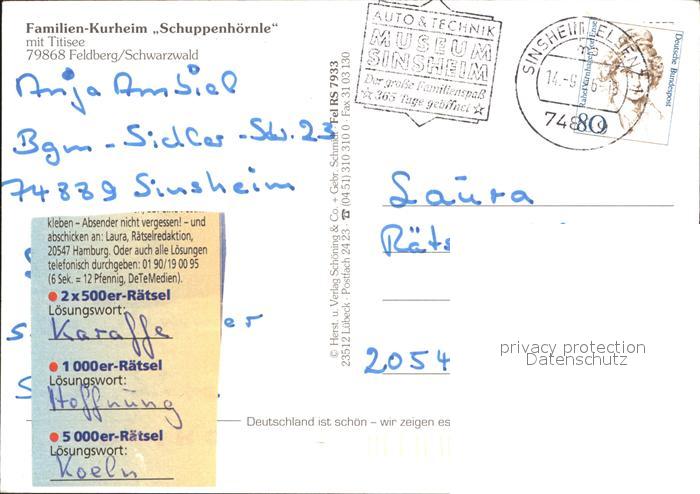 Familien-Kurheim „Schuppenhörnle“
mit Titisee
79868 Feldberg/Schwarzwald
Anja
Bgm - Sidler - Str. 23
74889 Sinsheim
kleben – Absender nicht vergessen! – und
abschicken an: Laura, Rätselredaktion,
20547 Hamburg. Oder auch alle Lösungen
telefonisch durchgeben: 01 90/19 00 95
(6 Sek. = 12 Pfennig, DeTeMedien).
2x500er-Rätsel
Lösungswort:
Karaffe
1 000er-Rätsel
Lösungswort:
Hoffnung
5 000er-Rätsel
Lösungswort:
Koeln
© Herst. u. Verlag Schöning & Co. + Gebr. Schmidt
23512 Lübeck · Postfach 24 23 · ☎ (04 51) 310 310 0 · Fax 31 03 130
Tel RS 7933
AUTO & TECHNIK
MUSEUM
SINSHEIM
Der große Familienspaß
☆ 365 Tage geöffnet ☆
SINSHEIM, ELSENZ
Deutsche Bundespost
80
Laura
Räts
2054
Deutschland ist schön – wir zeigen es
privacy protection
Datenschutz